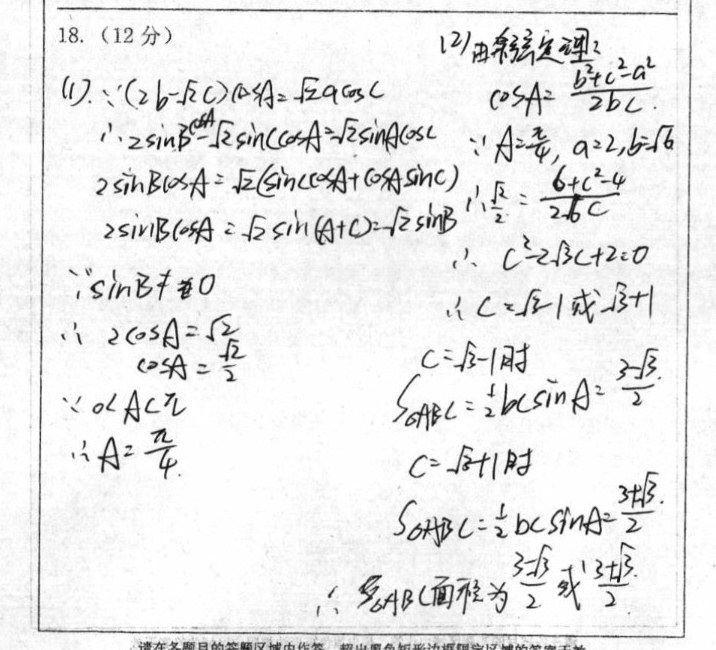 18.（12分）
(1). ∵(2b-√2c)cosA=√2acosC
∴2sinBcosA-√2sinCcosA=√2sinAcosC
2sinBcosA=√2(sinCcosA+cosAsinC)
2sinBcosA=√2sin(A+C)=√2sinB
∵sinB≠0
∴ 2cosA=√2
cosA=√2/2
∵ 0<A<π
∴ A=π/4.
(2)由余弦定理:
cosA=(b²+c²-a²)/2bc.
∵A=π/4, a=2, b=√6
∴√2/2=(6+c²-4)/2√6c
∴ c²-2√3c+2=0
∴ c=√3-1或√3+1
c=√3-1时
S△ABC=1/2bcsinA=(3-√3)/2.
c=√3+1时
S△ABC=1/2bcsinA=(3+√3)/2.
∴ △ABC面积为(3-√3)/2或(3+√3)/2.
请在各题目的答题区域内作答，超出黑色矩形边框限定区域的答案无效